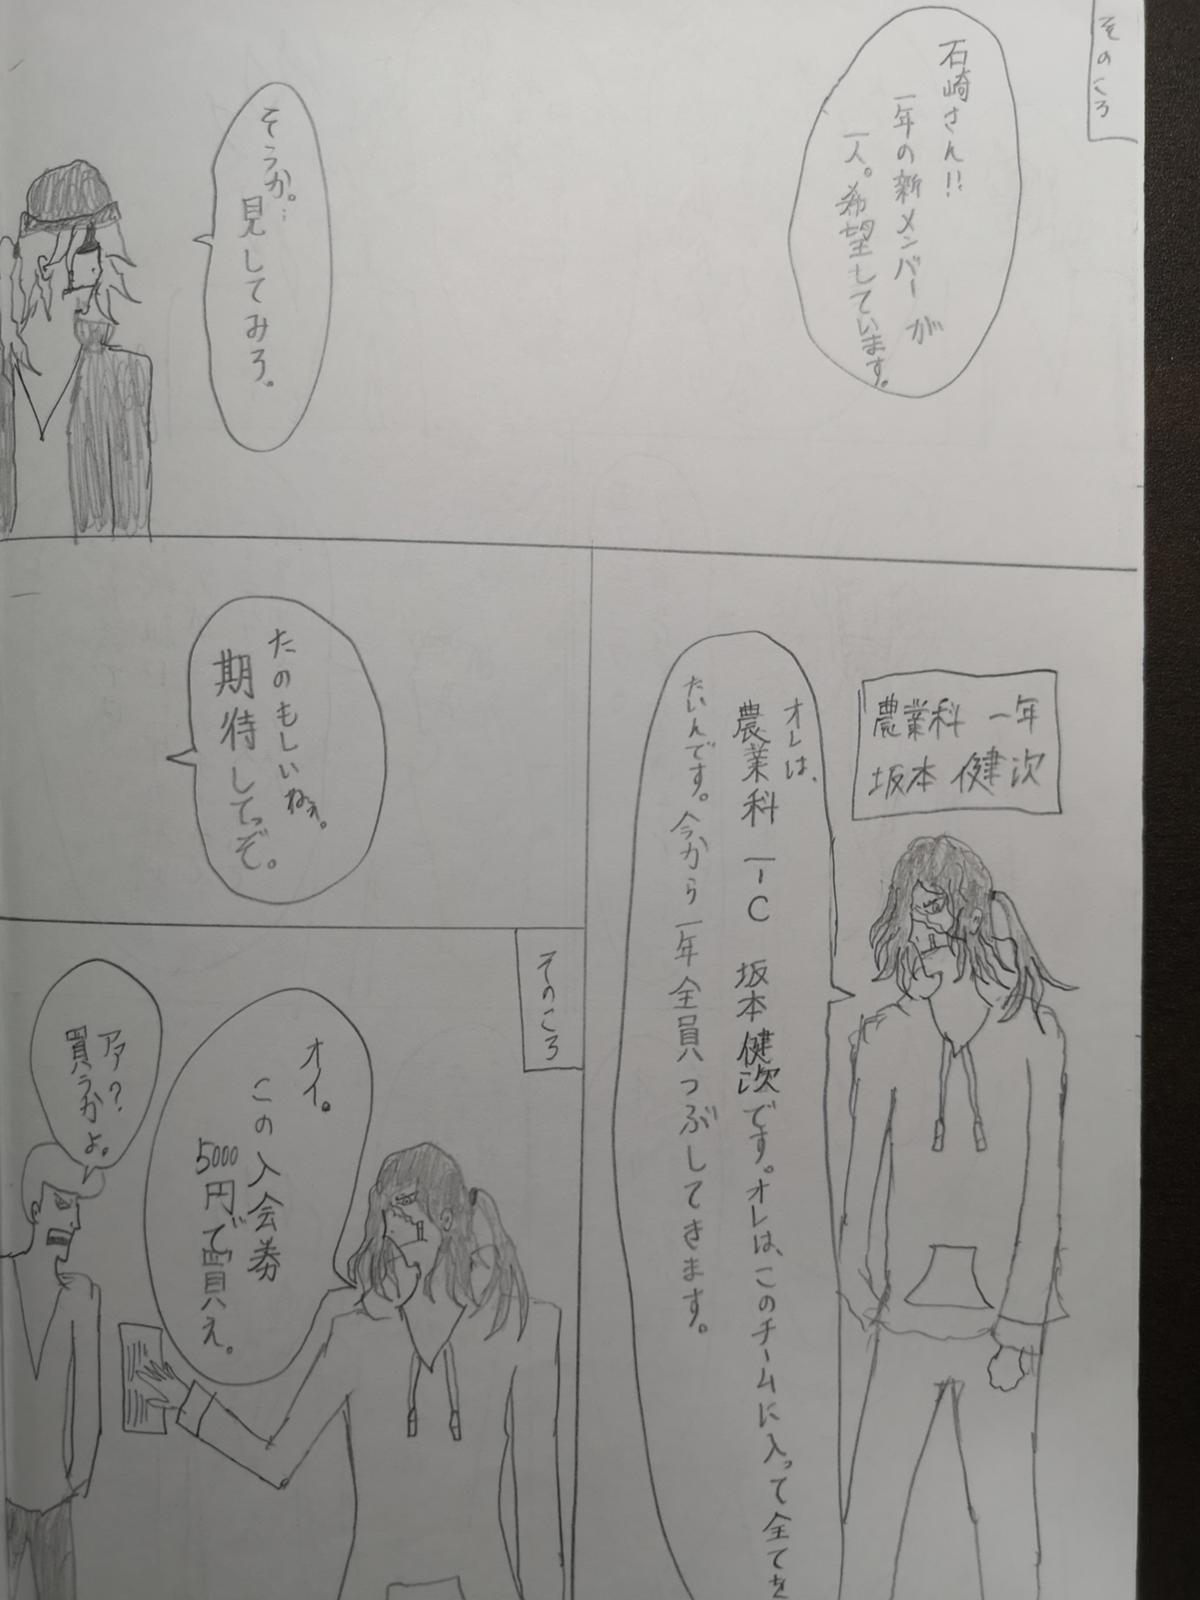 そのころ
石崎さん!!
一年の新メンバーが
一人。希望しています。
そうか。…
見してみろ。
農業科 一年
坂本 健次
オレは、
農業科 一-C 坂本健次です。オレは、このチームに入って全てを
たいんです。今から一年全員つぶしてきます。
たのもしいねぇ。
期待してっぞ。
そのころ
オイ。
この入会券
5000円で買え。
アァ?
買うかよ。